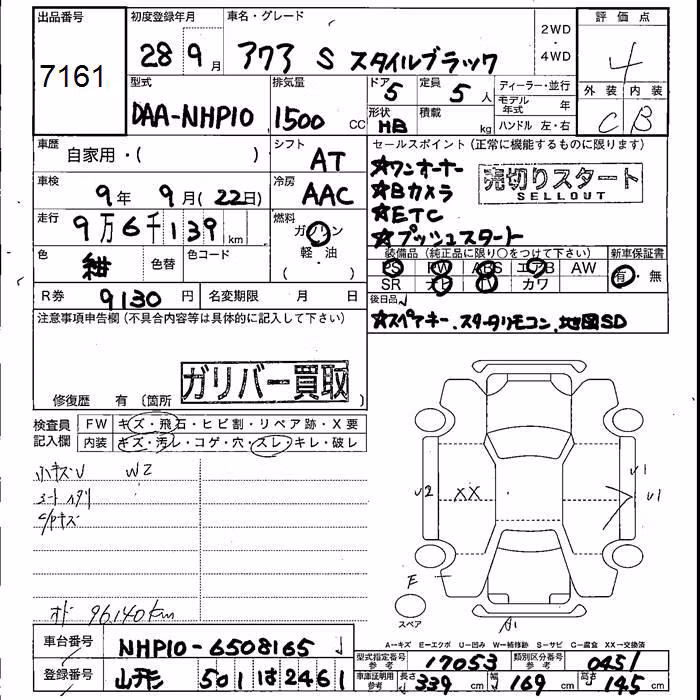 出品番号
7161
初度登録年月
28 9月
車名・グレード
アクア S スタイルブラック
2WD
・
4WD
評価点
4
外装 内装
C B
型式
DAA-NHP10
排気量
1500 CC
ドア
5
定員
5人
形状
HB
積載
kg
ディーラー・並行
モデル年式 年
ハンドル 左・右
車歴
自家用・( )
シフト
AT
セールスポイント(正常に機能するものに限ります)
☆ワンオーナー
☆Bカメラ
☆ETC
☆プッシュスタート
売切りスタート
SELLOUT
車検
9年 9月(22日)
冷房
AAC
走行
9万6千139km
燃料
ガソリン
軽・油
( ・ )
色
紺
色替
色コード
装備品(純正品に限り○をつけて下さい)
PS PW ABS エアB AW
SR ナビ TV カワ
新車保証書
有・無
R券 9130円
名変期限 月 日
後日品
☆スペアキー、スターターリモコン、地図SD
注意事項申告欄(不具合内容等は具体的に記入して下さい)
ガリバー買取
修復歴 有 (箇所 )
検査員記入欄
FW キズ・飛石・ヒビ割・リペア跡・X要
内装 キズ・汚レ・コゲ・穴・スレ・キレ・破レ
小キズU W2
シートヘタリ
C/Pキズ
オド 96,140km
U2
XX
U1
U1
E
A1
スペア
A→キズ E→エクボ U→凹み W→補修跡 S→サビ C→腐食 XX→交換済
車台番号
NHP10-6508165
登録番号
山形 501 は 2461
型式指定番号 参考
17053
類別区分番号 参考
0451
車庫証明用 参考
長さ 339cm 幅 169cm 高さ 145cm